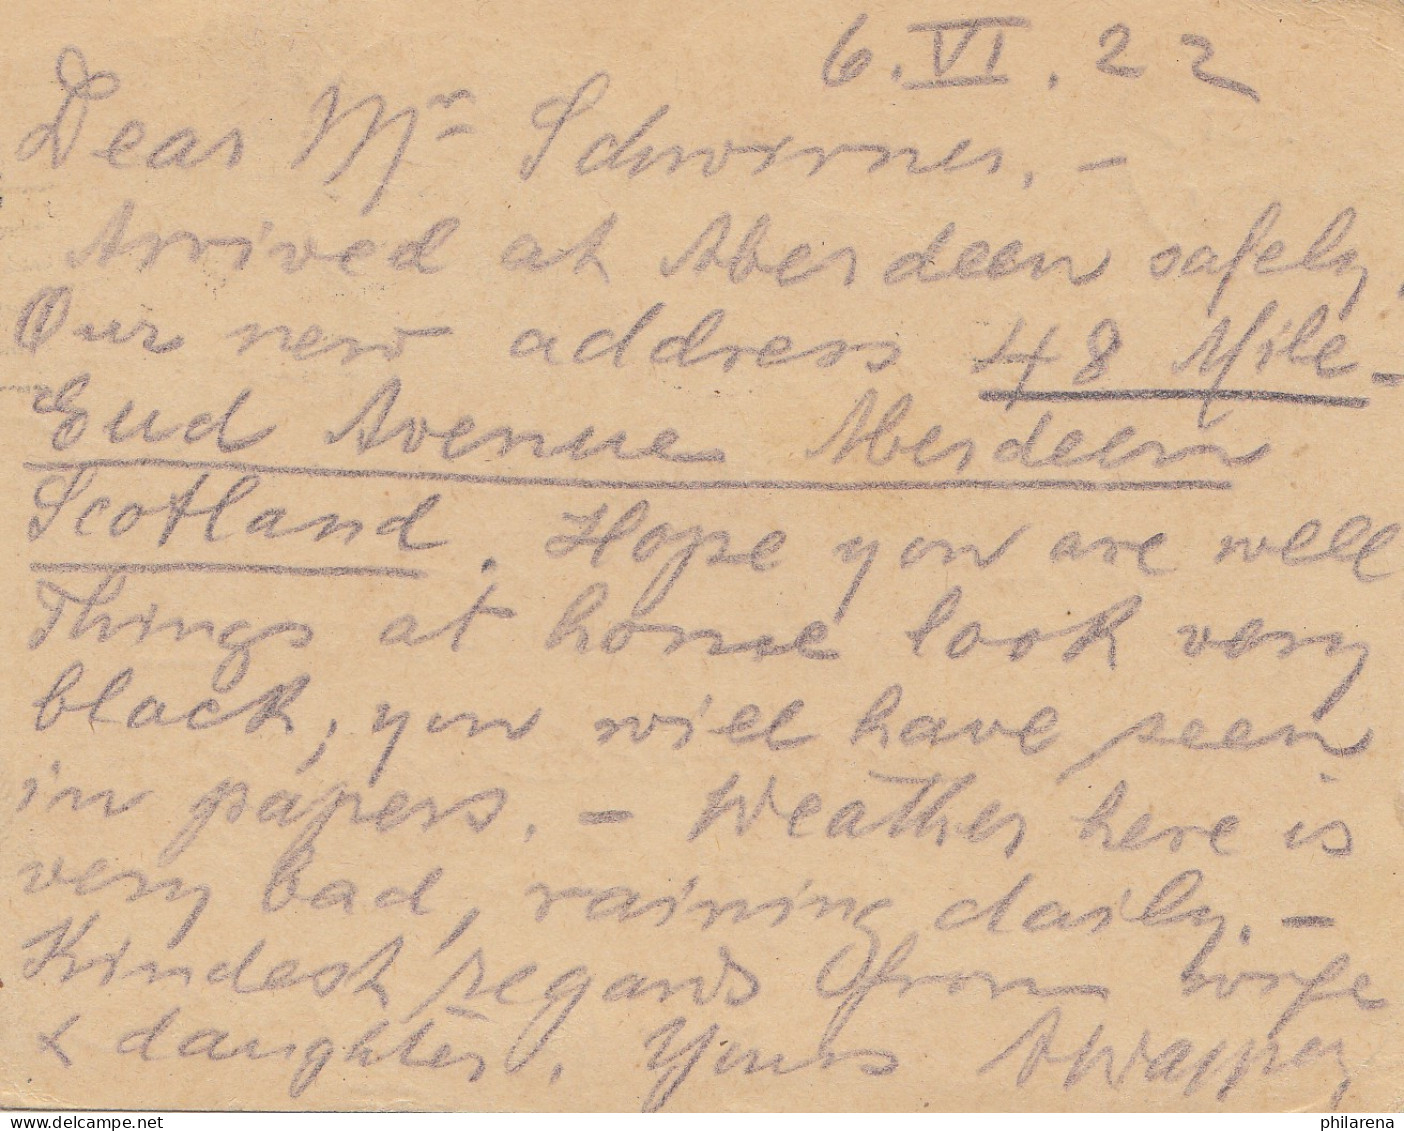 6.VI.22
Dear Mr
Arrived at Aberdeen safely.
Our new address 48 Mile-
End Avenue Aberdeen
Scotland. Hope you are well
Things at home look very
black, you will have seen
in papers. - Weather here is
very bad, raining daily. -
Kindest regards from wife
& daughter. Yours
philarena